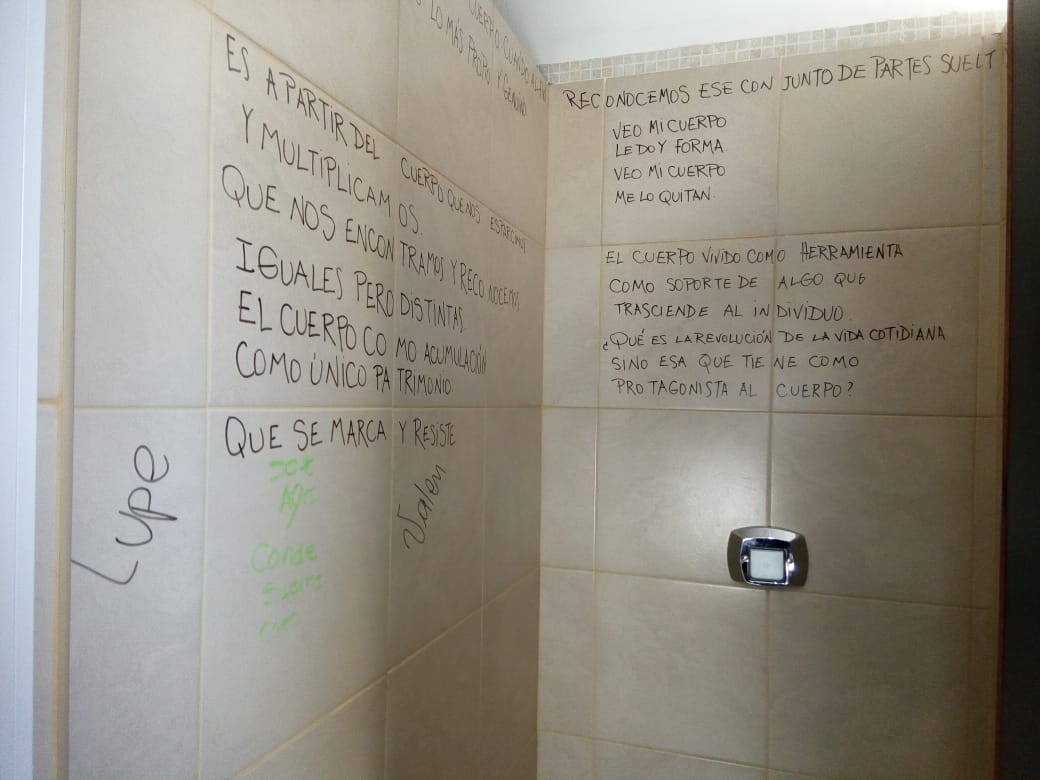 CUERPO CUANDO
LO MÁS PROPIO Y GENUINO
ES A PARTIR DEL CUERPO QUE NOS ESPARCIMOS
Y MULTIPLICAMOS.
QUE NOS ENCONTRAMOS Y RECONOCEMOS
IGUALES PERO DISTINTAS.
EL CUERPO COMO ACUMULACIÓN
COMO ÚNICO PATRIMONIO
QUE SE MARCA Y RESISTE
Lupe
Valen
Conde
RECONOCEMOS ESE CONJUNTO DE PARTES SUELT
VEO MI CUERPO
LE DOY FORMA.
VEO MI CUERPO
ME LO QUITAN.
EL CUERPO VIVIDO COMO HERRAMIENTA
COMO SOPORTE DE ALGO QUE
TRASCIENDE AL INDIVIDUO.
¿QUÉ ES LA REVOLUCIÓN DE LA VIDA COTIDIANA
SINO ESA QUE TIENE COMO
PROTAGONISTA AL CUERPO?